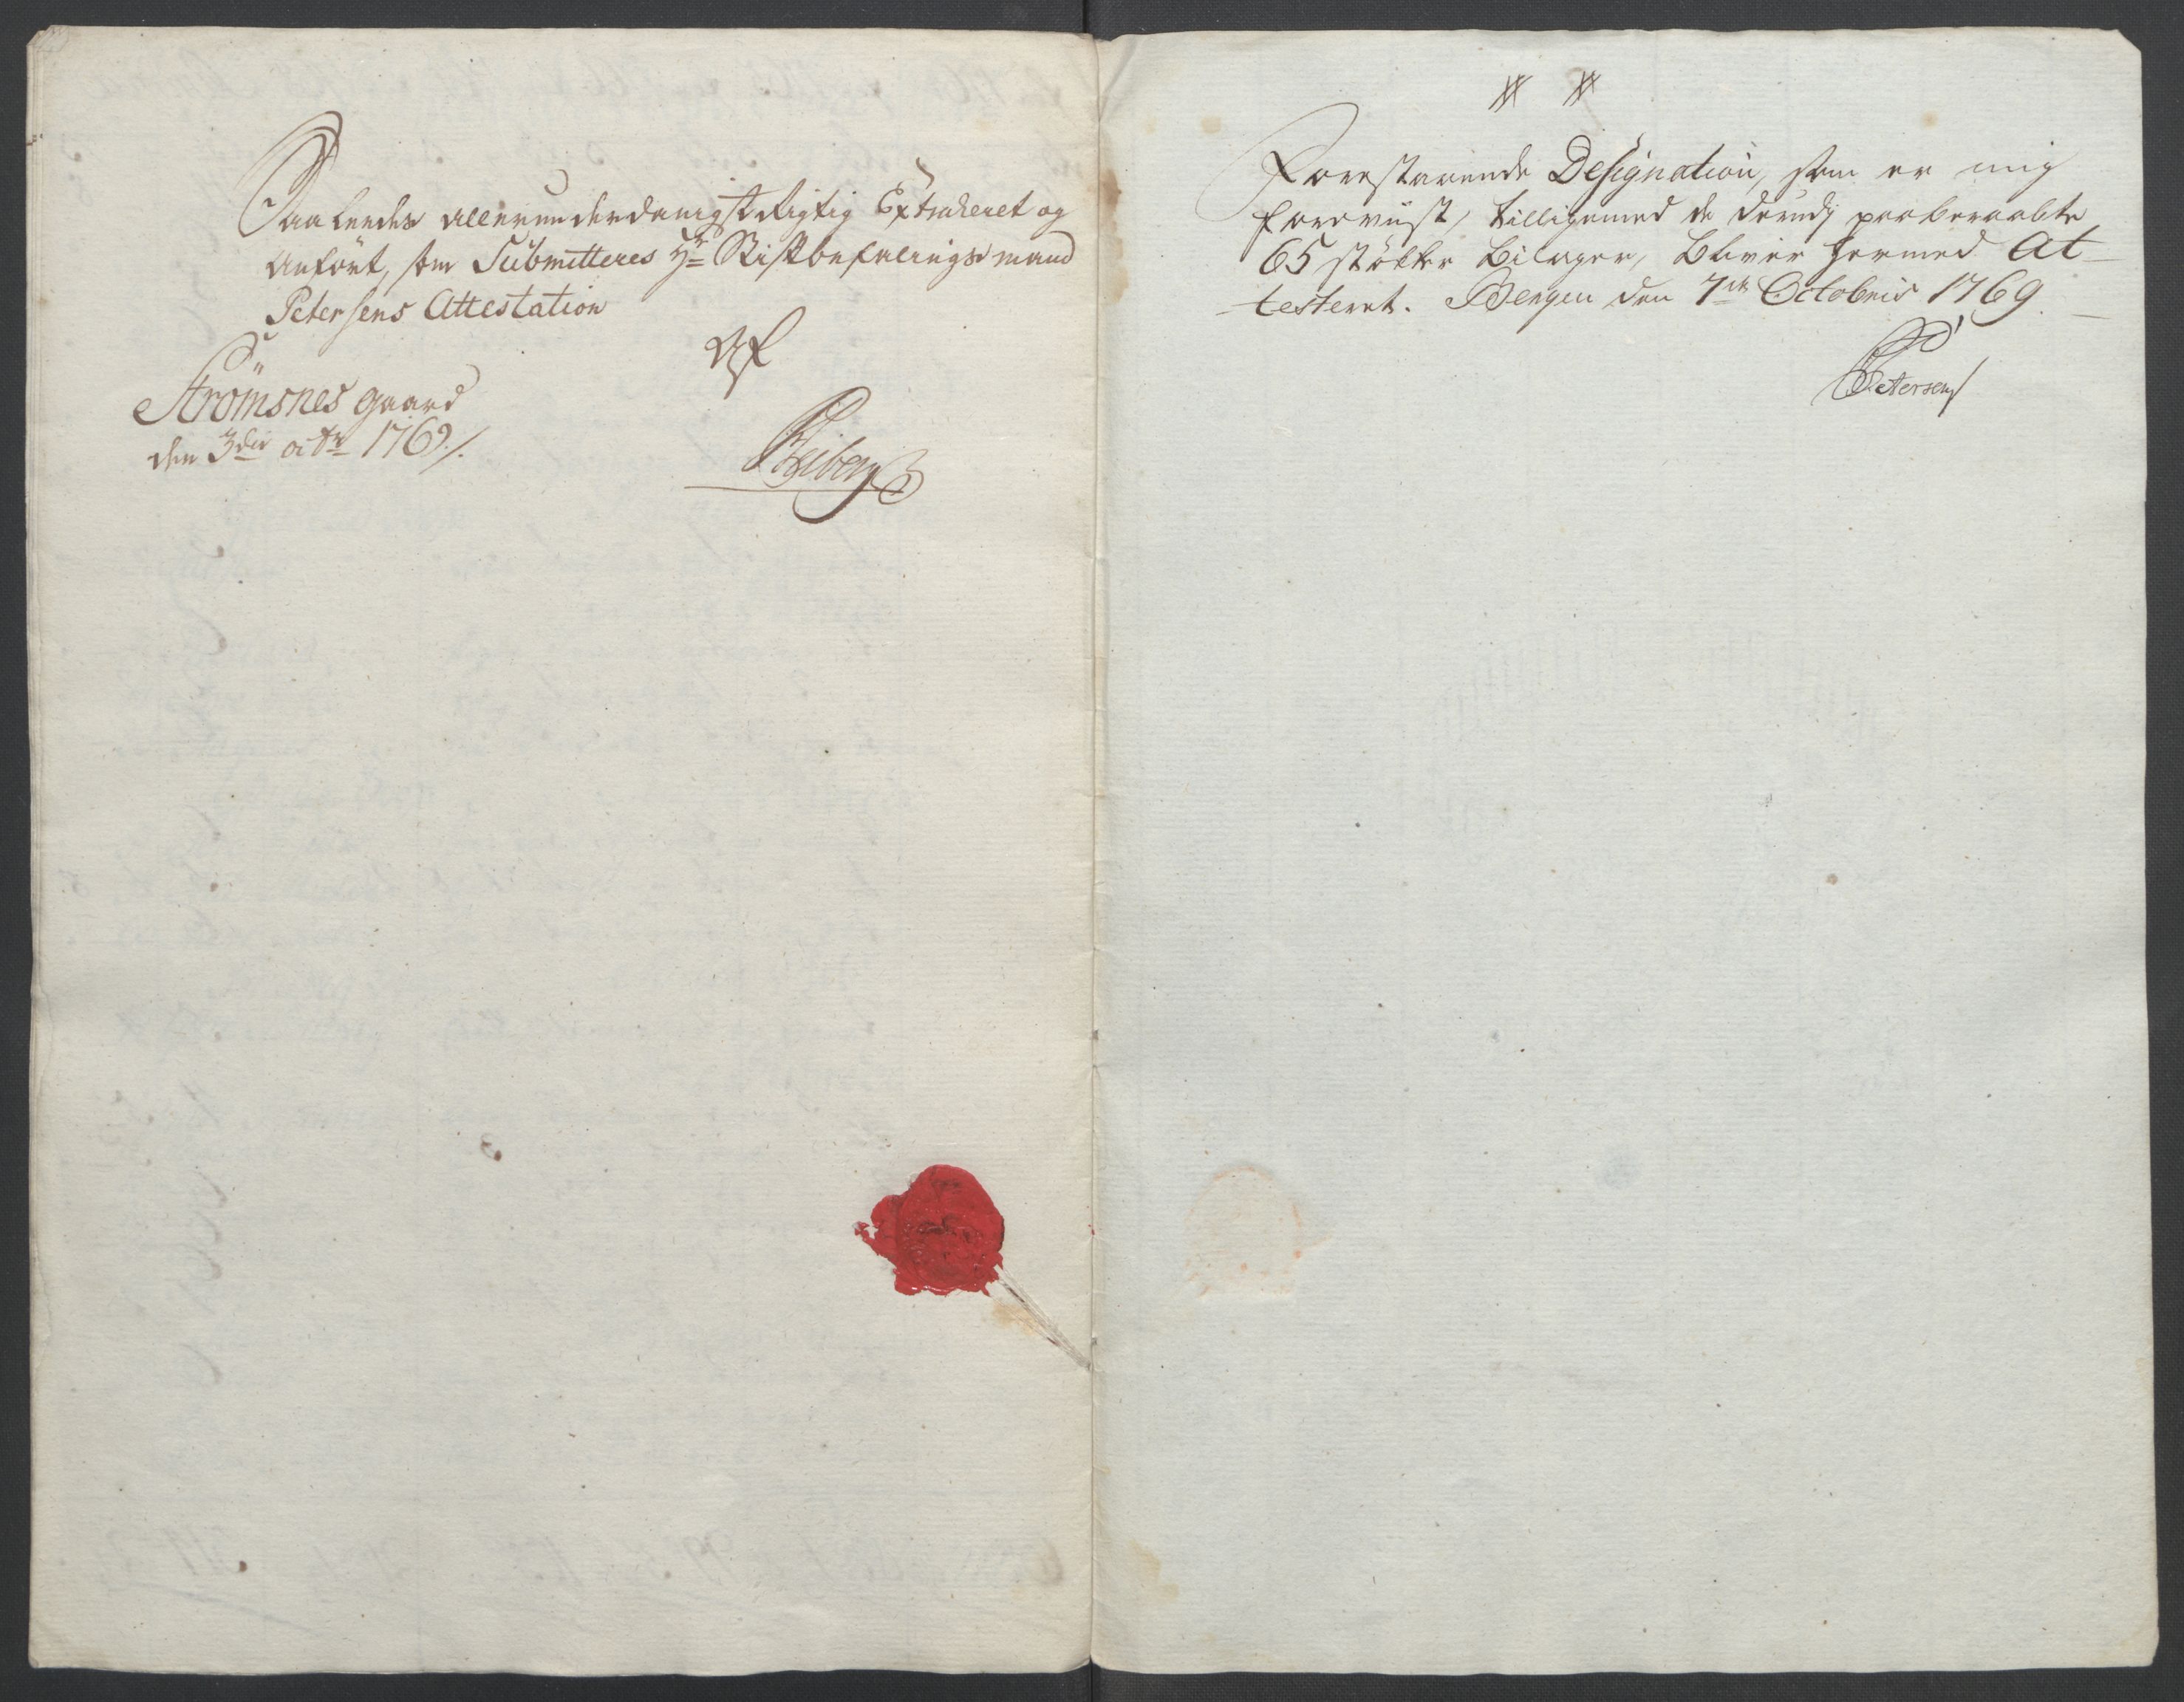 Saaledes allerunderdanigst Rigtig Extraheret og
Anført, som Submitteres Hr Stiftbefalingsmand
Petersens Attestation
af
Strömsnes gaard
den 3die octr 1769./.
Fleiberg
Forestaaende Designation, som er mig
foreviist, tilligemed de derudj paaberaabte
65 stökker Bilager, bliver hermed At-
testeret. Bergen den 7de Octobris 1769.
Petersen